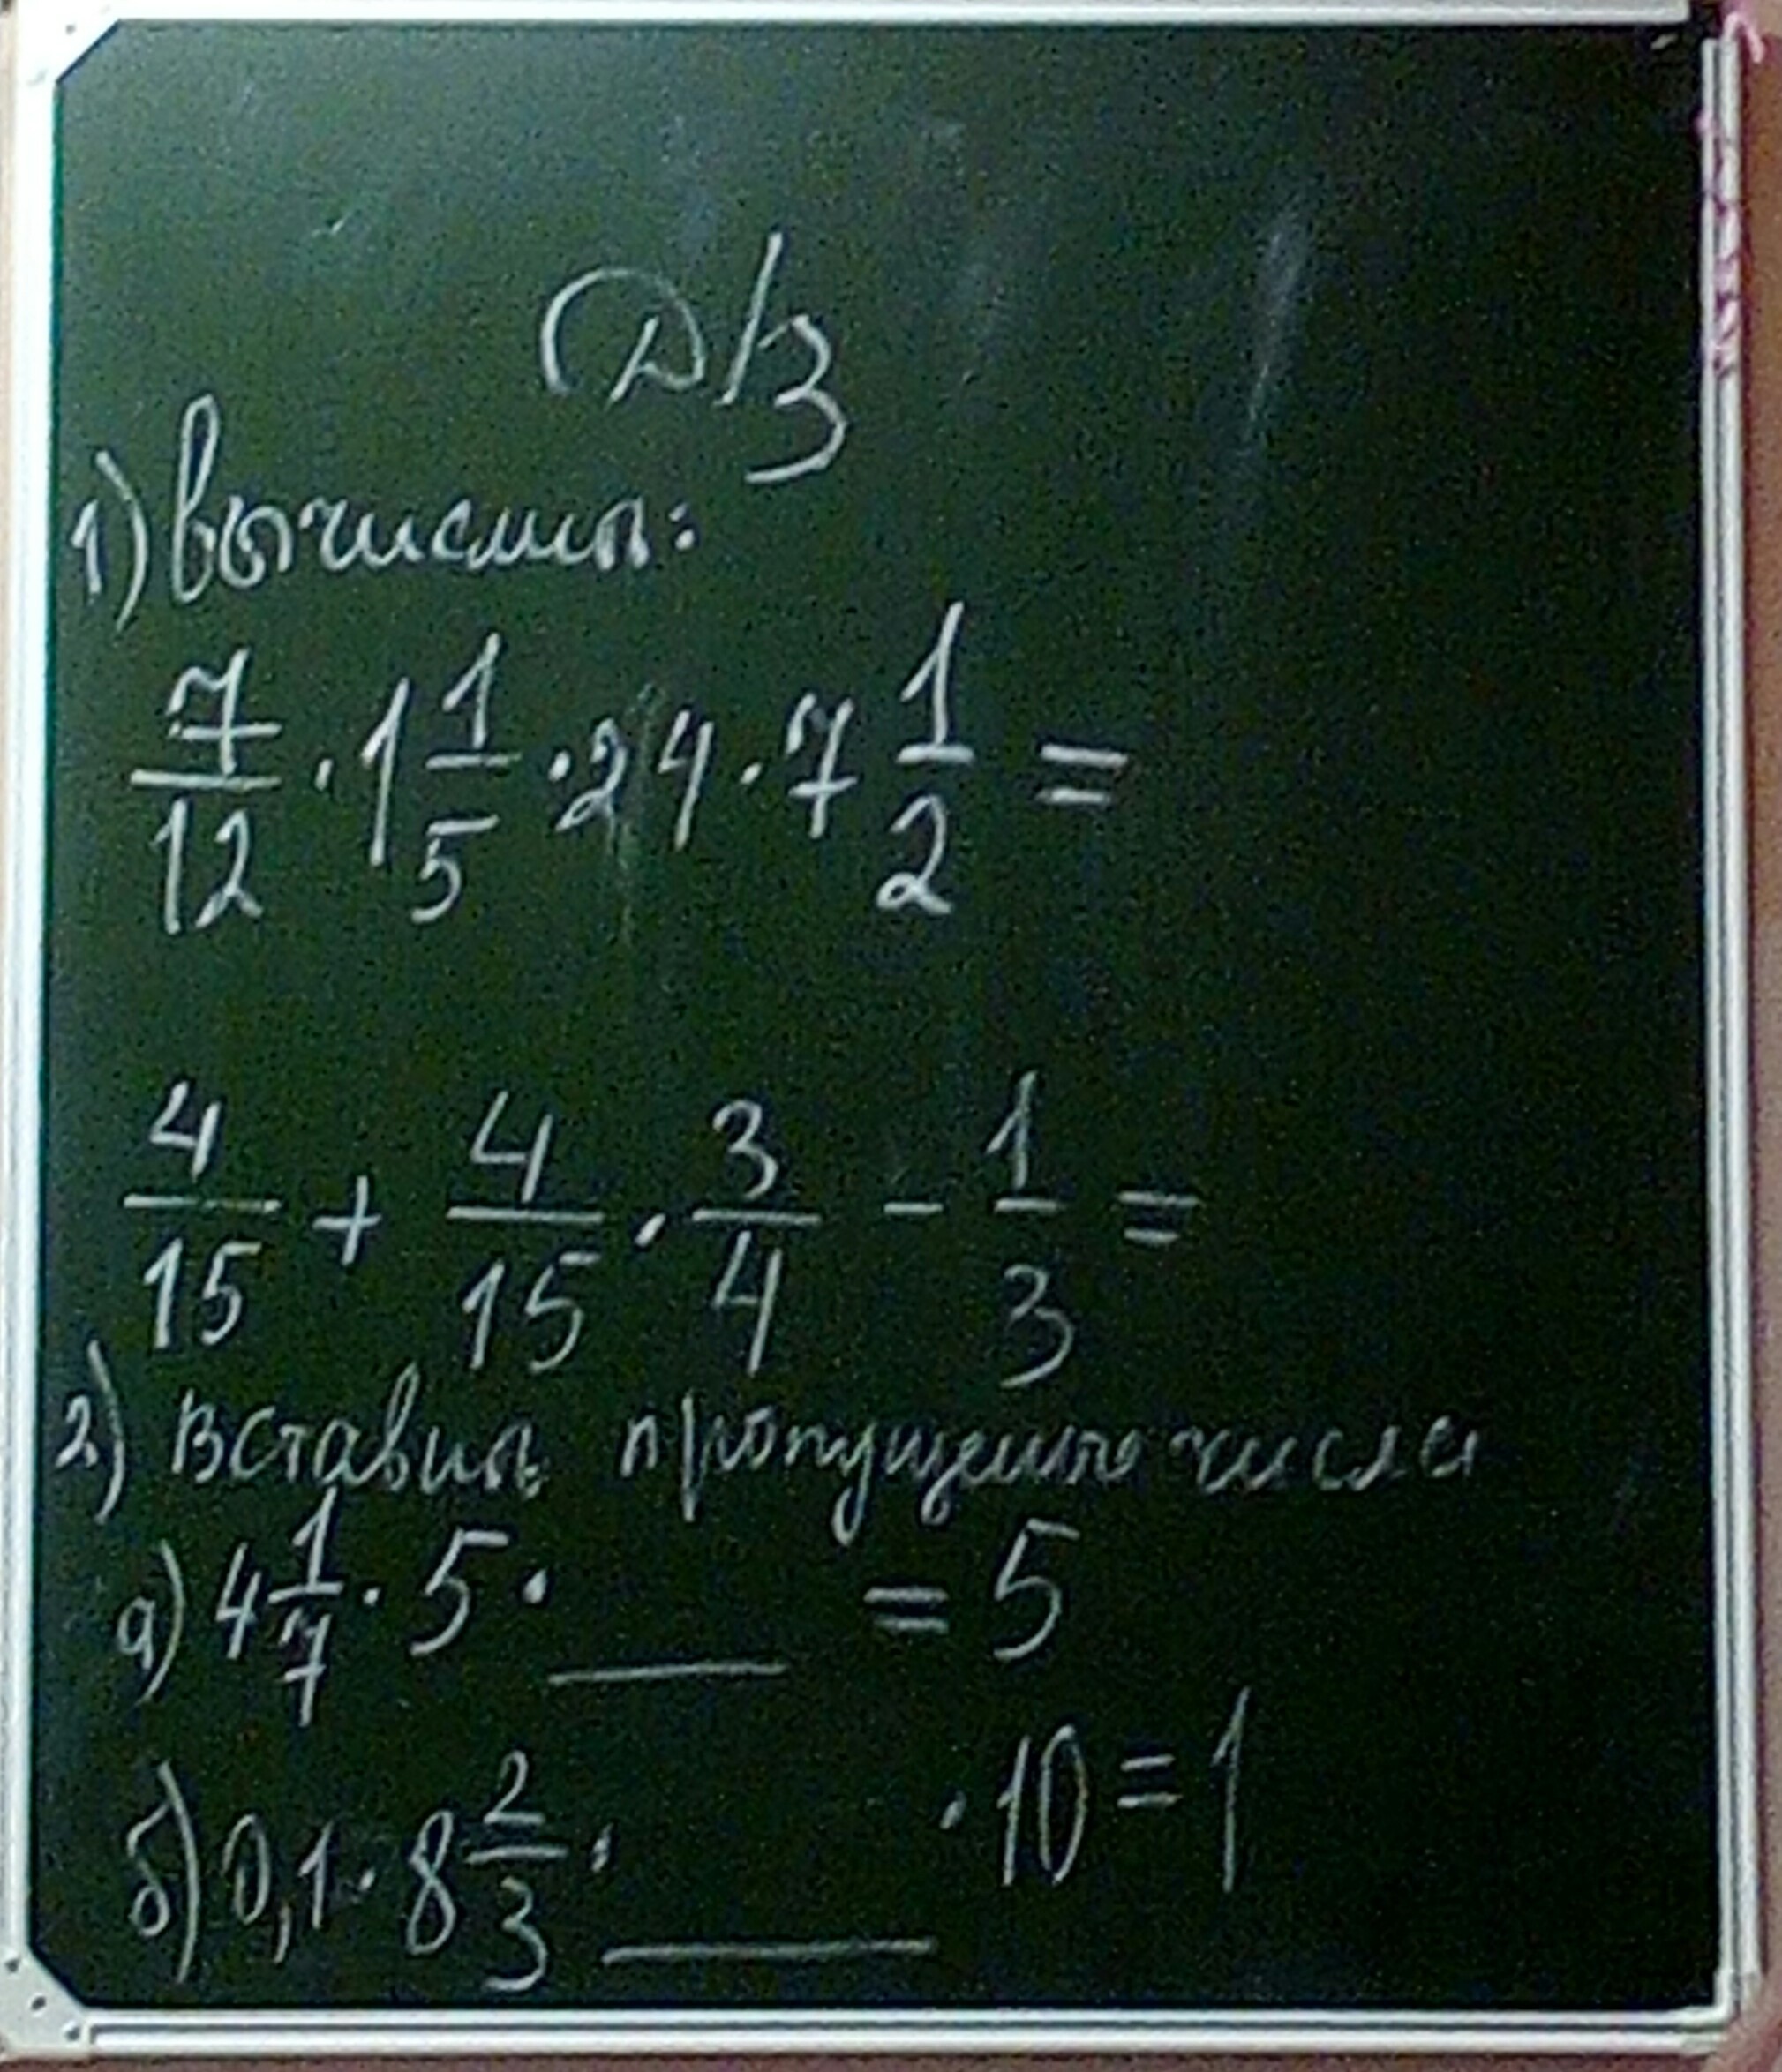 Д/З
1) вычислить:
7/12 · 1 1/5 · 24 · 7 1/2 =
4/15 + 4/15 · 3/4 - 1/3 =
2) вставить пропущенные числа
а) 4 1/7 · 5 · ___ = 5
б) 0,1 · 8 2/3 · ___ · 10 = 1